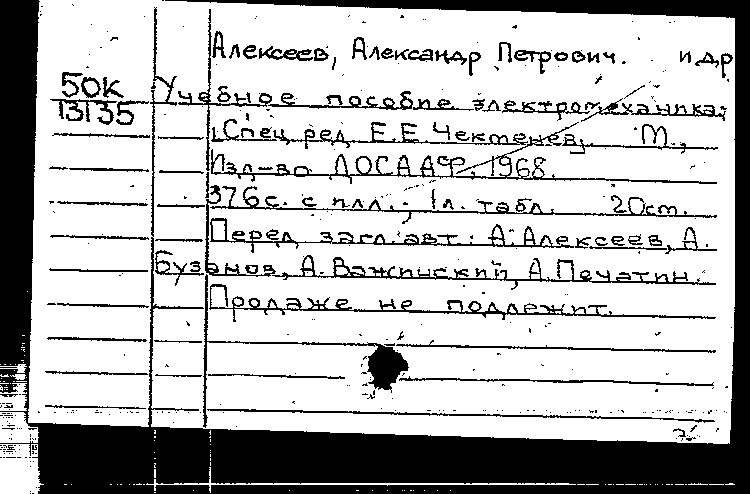 Алексеев, Александр Петрович. и др
50К
13135
Учебное пособие электромеханика;
Спец. ред. Е.Е. Чектенев. М.,
Изд-во ДОСААФ, 1968.
376с. с илл.; 1л. табл. 20см.
Перед загл. авт.: А. Алексеев, А.
Бузанов, А. Важинский, А. Печатин.
Продаже не подлежит.